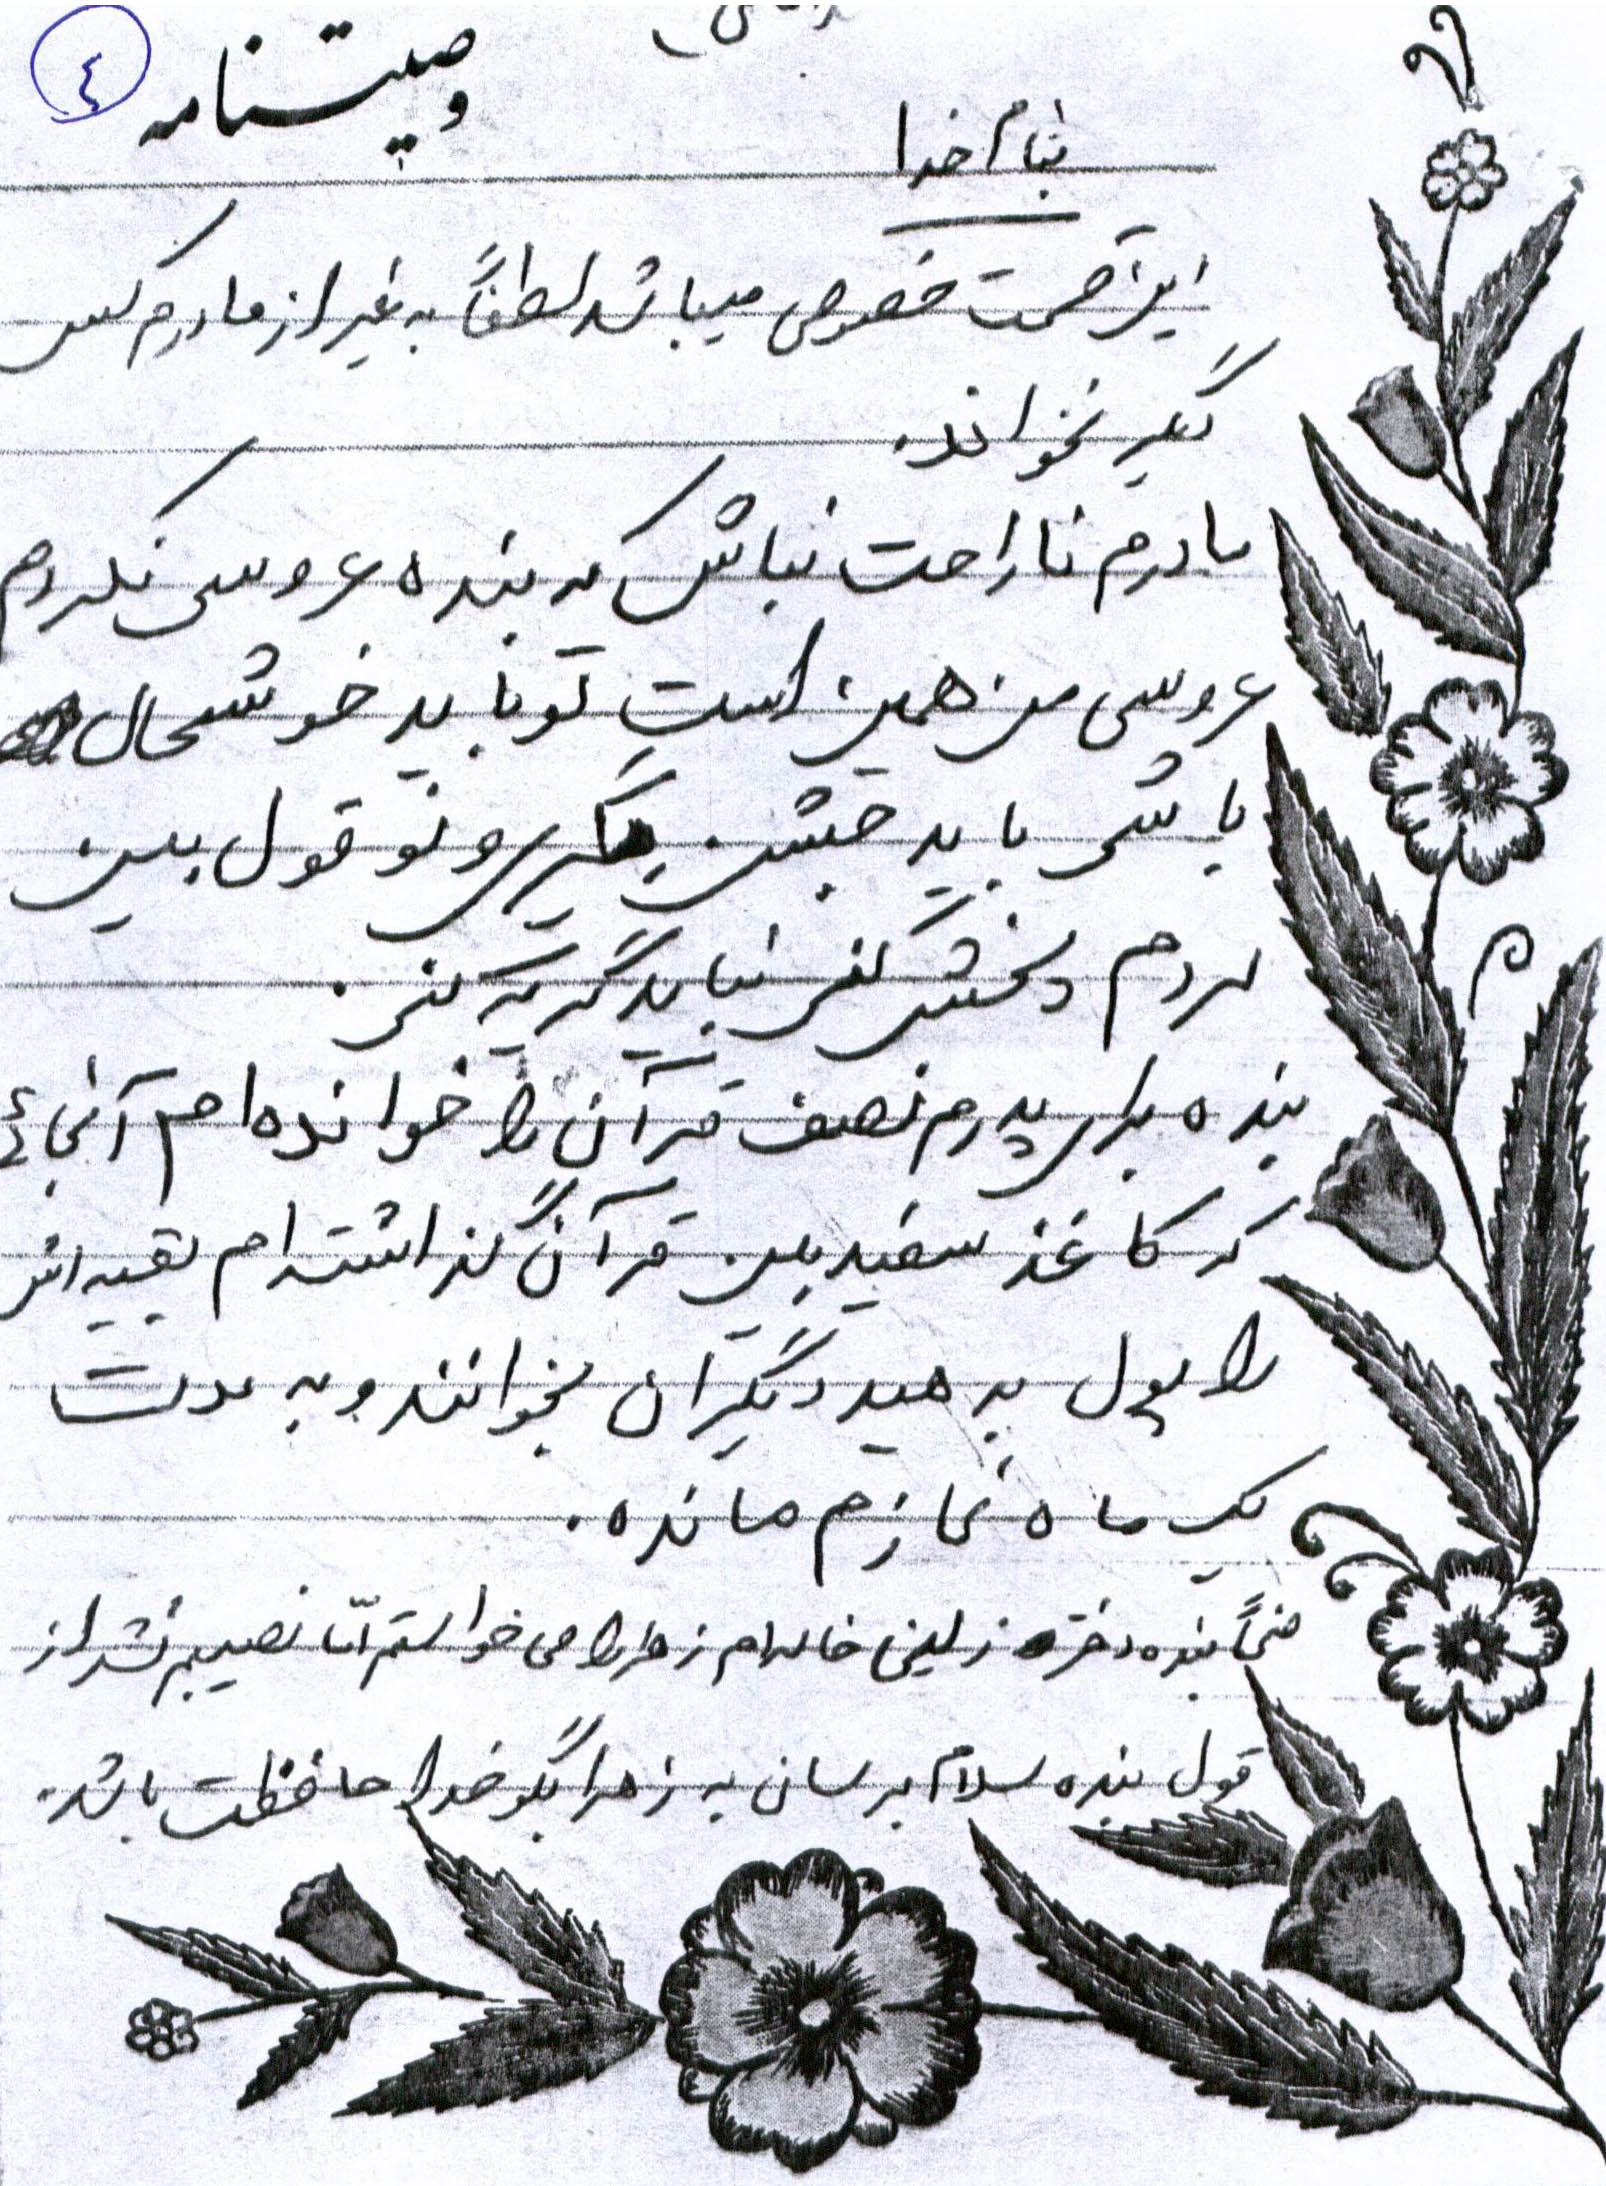 وصیتنامه
٤
بنام خدا
این قسمت خصوصی میباشد لطفاً به غیر از مادرم کس
دیگر نخواند.
مادرم ناراحت نباش که بنده عروسی نکردم
عروسی من همین است تو باید خوشحال
باشی باید جشن بگیری و تو قول بمن
دادم نباید گریه کنی.
بنده برای پدرم نصف قرآن را خوانده‌ام آنجائی
که کاغذ سفید بین قرآن گذاشته‌ام بقیه‌اش
را پول بدهید دیگران بخوانند و به مدت
یک ماه نمازم مانده.
ضمناً بنده دختر خاله‌ام زهرا را می‌خواستم امّا نصیبم نشد از
قول بنده سلام برسان به زهرا بگو خدا حافظت باشد.